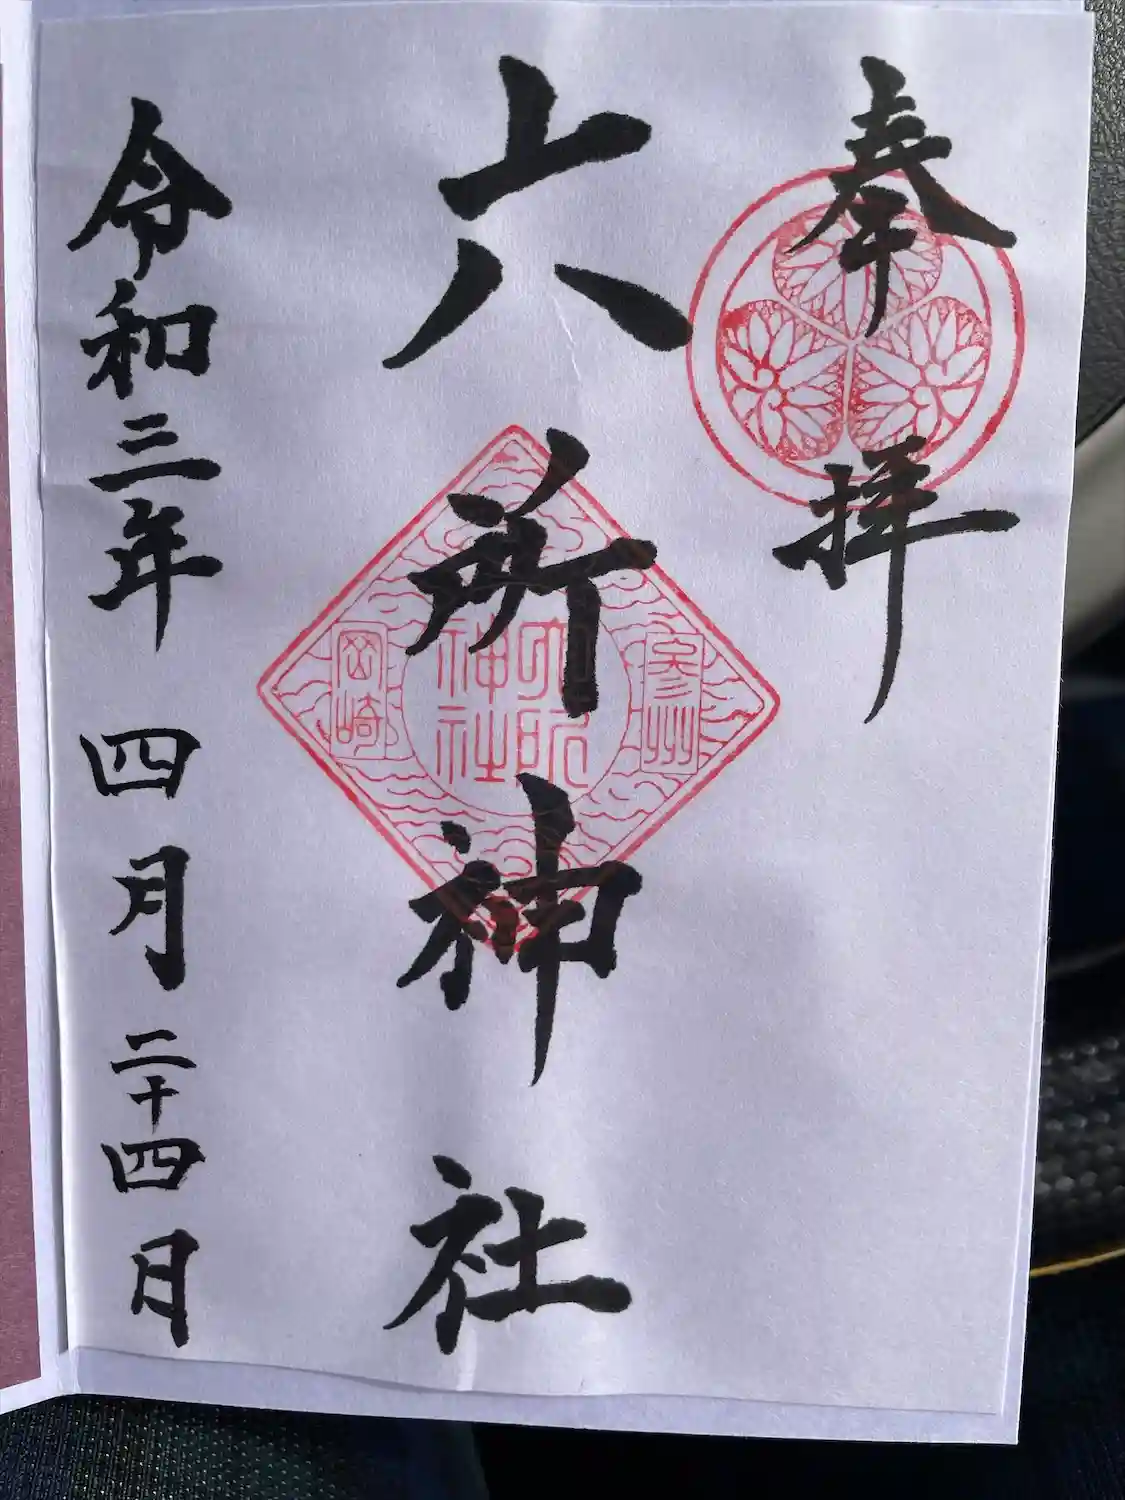 奉拝
参州
六所神社
六所
神社
岡崎
令和三年四月二十四日